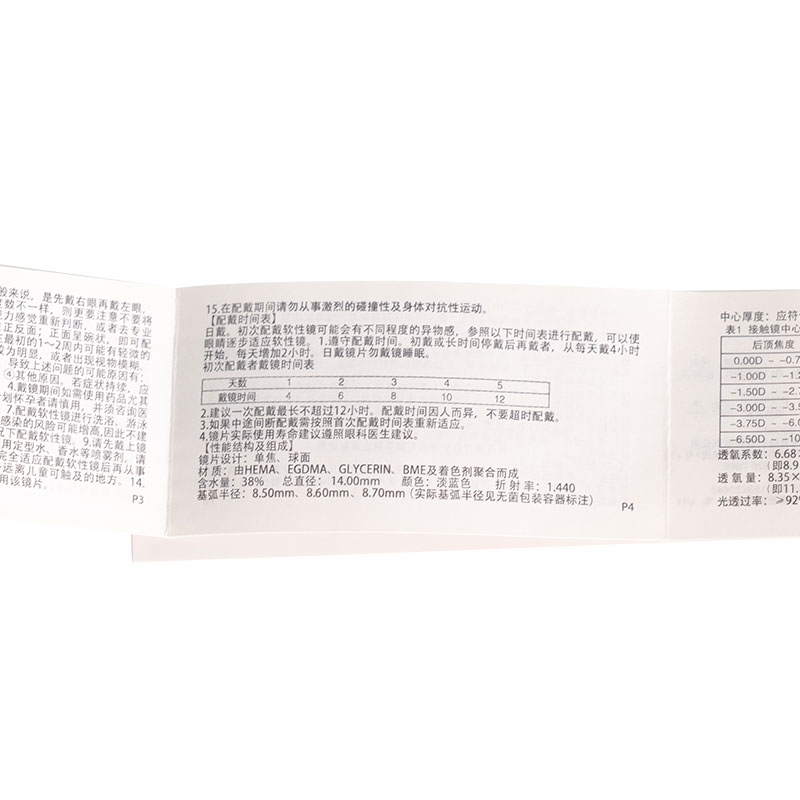 般来说，是先戴右眼再戴左眼，
度数不一样，则更要注意不要将
力感觉重新判断，或者去专业
正反面；正面呈碗状，即可配
最初的1~2周内可能有轻微的
较为明显，或者出现视物模糊，
导致上述问题的可能原因有：
④其他原因。若症状持续，应
4.戴镜期间如需使用药品尤其
划怀孕者请慎用，并须咨询医
7.配戴软性镜进行洗浴、游泳
感染的风险可能增高,因此不建
况下配戴软性镜。9.请先戴上镜
用定型水、香水等喷雾剂，请
完全适应配戴软性镜后再从事
远离儿童可触及的地方。14.
用该镜片。
P3
15.在配戴期间请勿从事激烈的碰撞性及身体对抗性运动。
【配戴时间表】
日戴。初次配戴软性镜可能会有不同程度的异物感，参照以下时间表进行配戴，可以使
眼睛逐步适应软性镜。1.遵守配戴时间。初戴或长时间停戴后再戴者，从每天戴4小时
开始，每天增加2小时。日戴镜片勿戴镜睡眠。
初次配戴者戴镜时间表
天数 1 2 3 4 5
戴镜时间 4 6 8 10 12
2.建议一次配戴最长不超过12小时。配戴时间因人而异，不要超时配戴。
3.如果中途间断配戴需按照首次配戴时间表重新适应。
4.镜片实际使用寿命建议遵照眼科医生建议。
【性能结构及组成】
镜片设计：单焦、球面
材 质：由HEMA、EGDMA、GLYCERIN、BME及着色剂聚合而成
含水量：38% 总直径：14.00mm 颜色：淡蓝色 折 射 率：1.440
基弧半径：8.50mm、8.60mm、8.70mm（实际基弧半径见无菌包装容器标注）
P4
中心厚度：应符
表1 接触镜中心
后顶焦度
0.00D ~ -0.7
-1.00D ~ -1.2
-1.50D ~ -2.
-3.00D ~ -3.
-3.75D ~ -6.0
-6.50D ~ -10
透氧系数：6.68×
（即8.9
透 氧 量：8.35×
（即11.
光透过率：≥92%